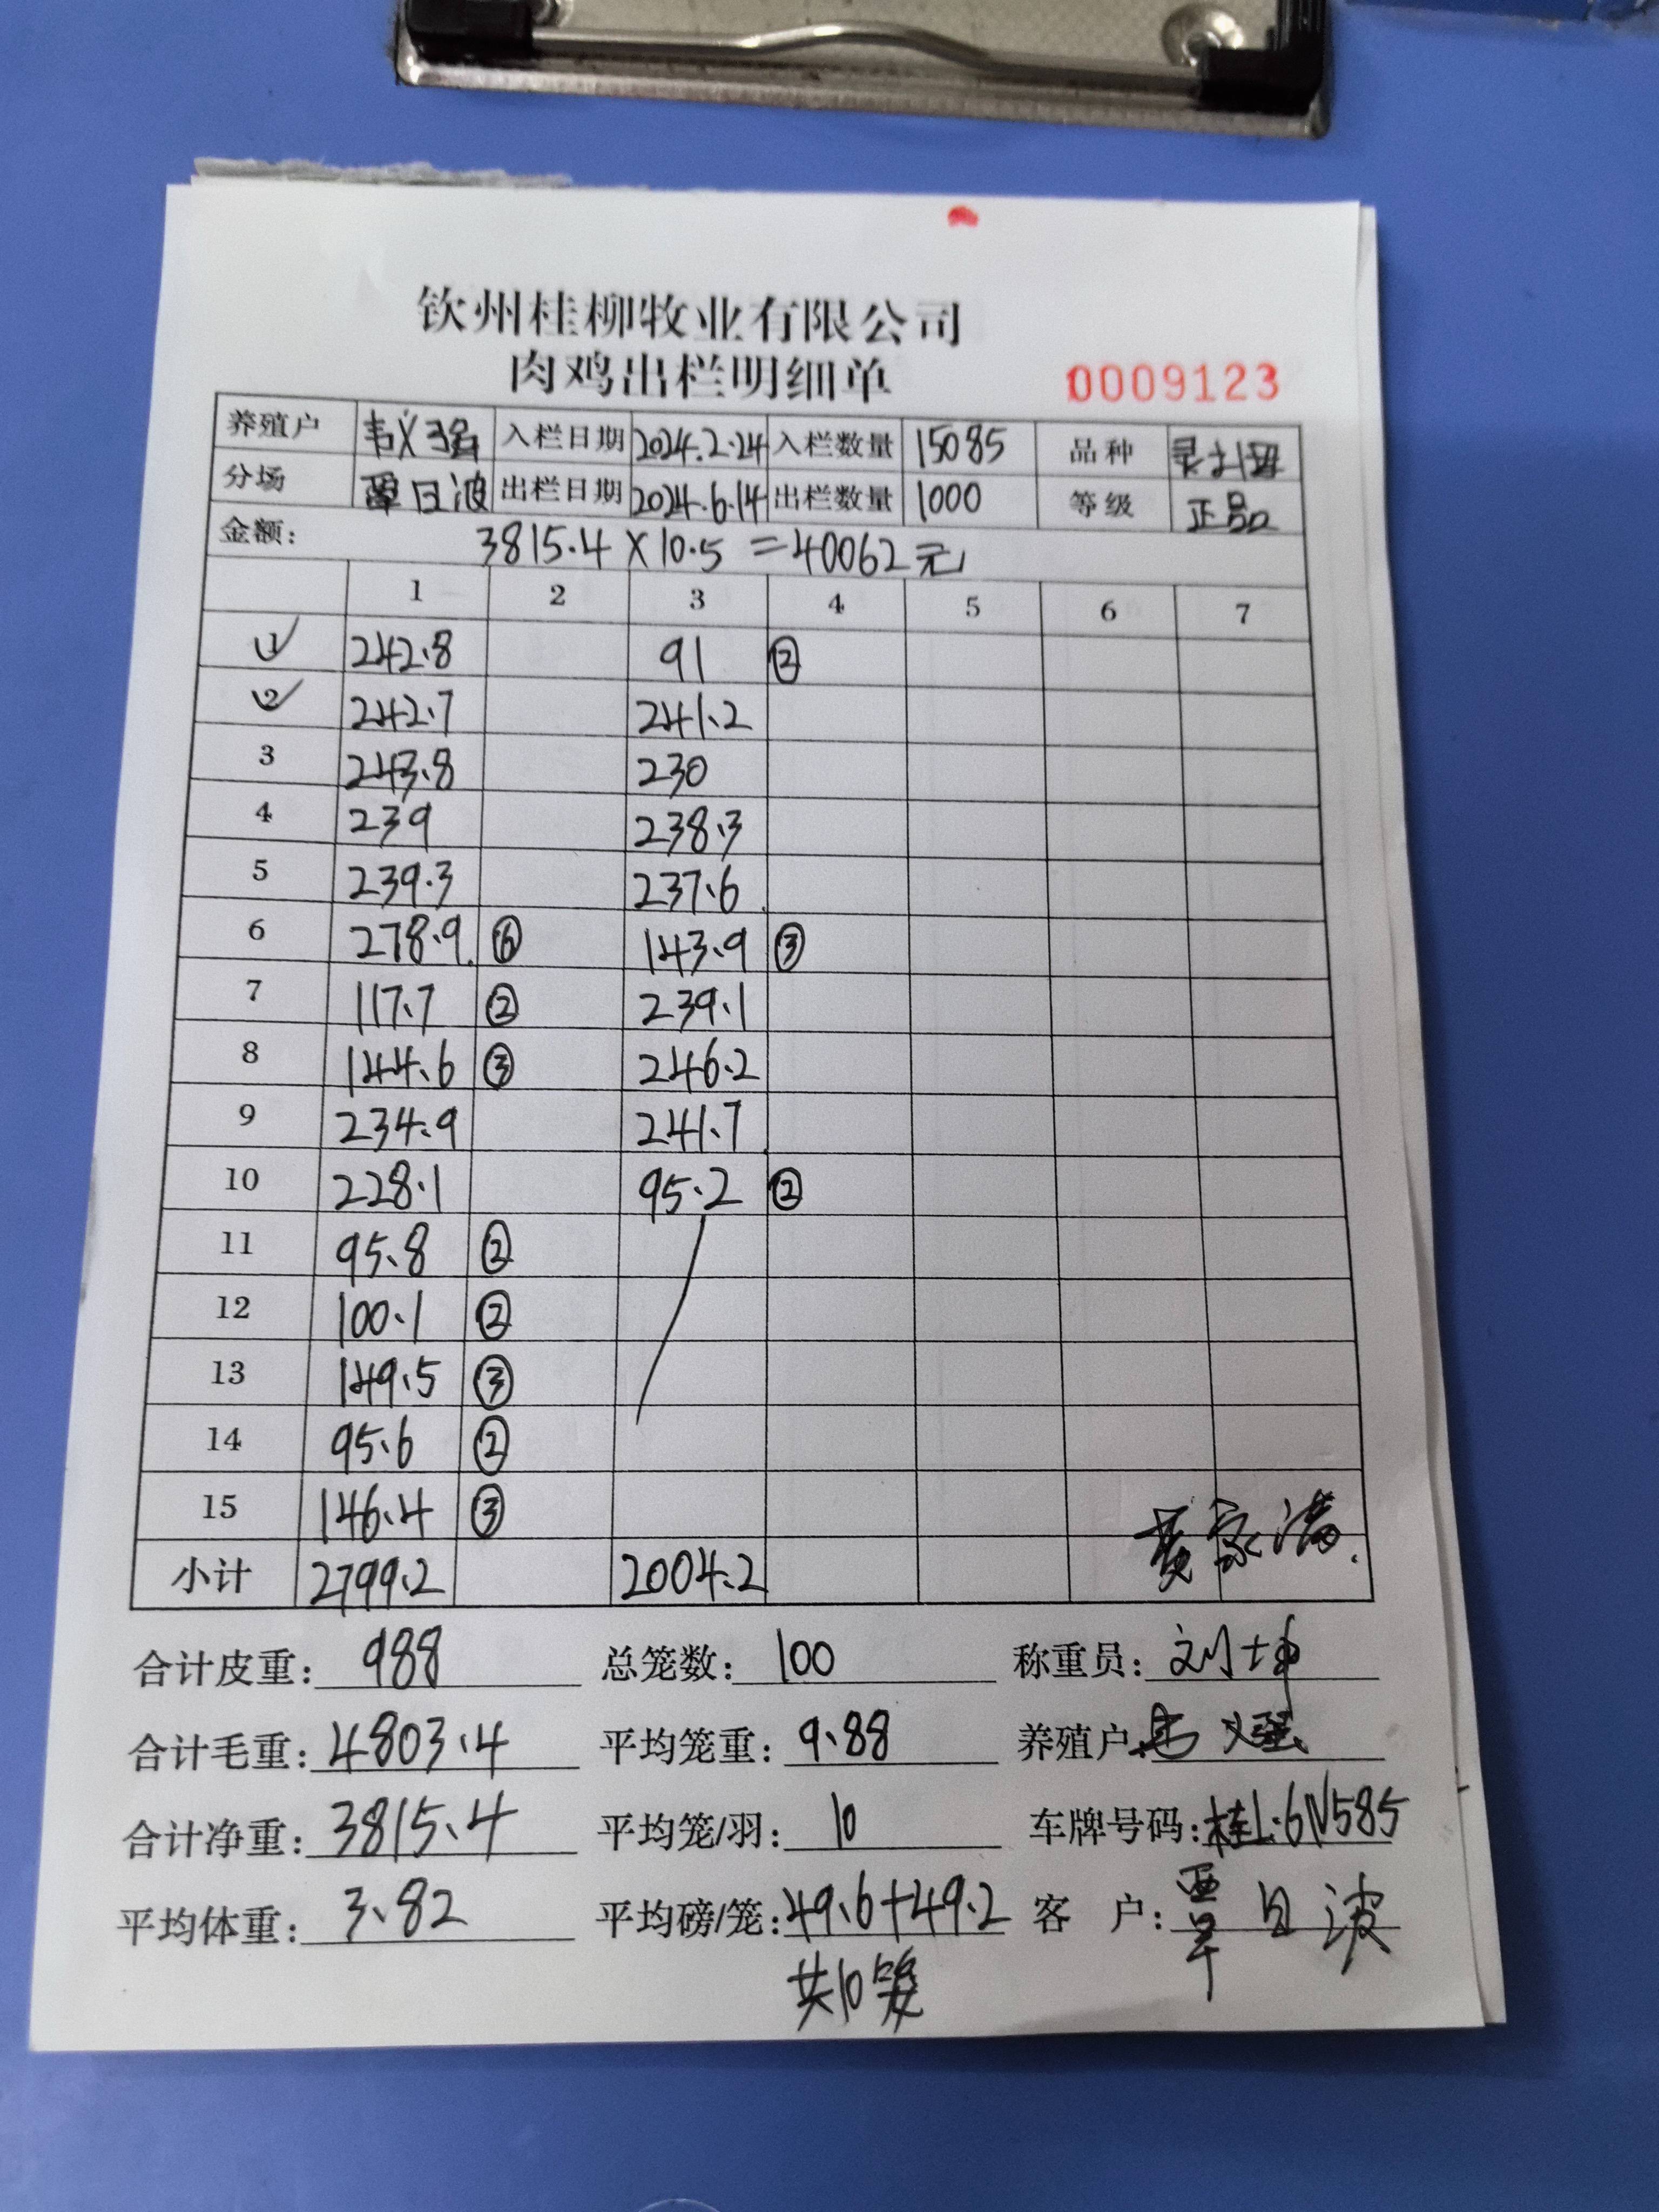 钦州桂柳牧业有限公司
肉鸡出栏明细单 0009123
养殖户 韦义强 入栏日期 2024.2.24 入栏数量 15085 品种
分场 覃日波 出栏日期 2024.6.14 出栏数量 1000 等级 正品
金额: 3815.4×10.5=40062元
1 2 3 4 5 6 7
1 242.8 91 ②
2 242.7 241.2
3 243.8 230
4 239 238.3
5 239.3 237.6
6 278.9 ⑥ 143.9 ③
7 117.7 ② 239.1
8 144.6 ③ 246.2
9 234.9 241.7
10 228.1 95.2 ②
11 95.8 ②
12 100.1 ②
13 149.5 ③
14 95.6 ②
15 146.4 ③
黄家满
小计 2799.2 2004.2
合计皮重: 988 总笼数: 100 称重员: 刘坤
合计毛重: 4803.4 平均笼重: 9.88 养殖户: 韦义强
合计净重: 3815.4 平均笼/羽: 10 车牌号码: 桂L·6N585
平均体重: 3.82 平均磅/笼: 49.6+49.2 客 户: 覃日波
共10笼